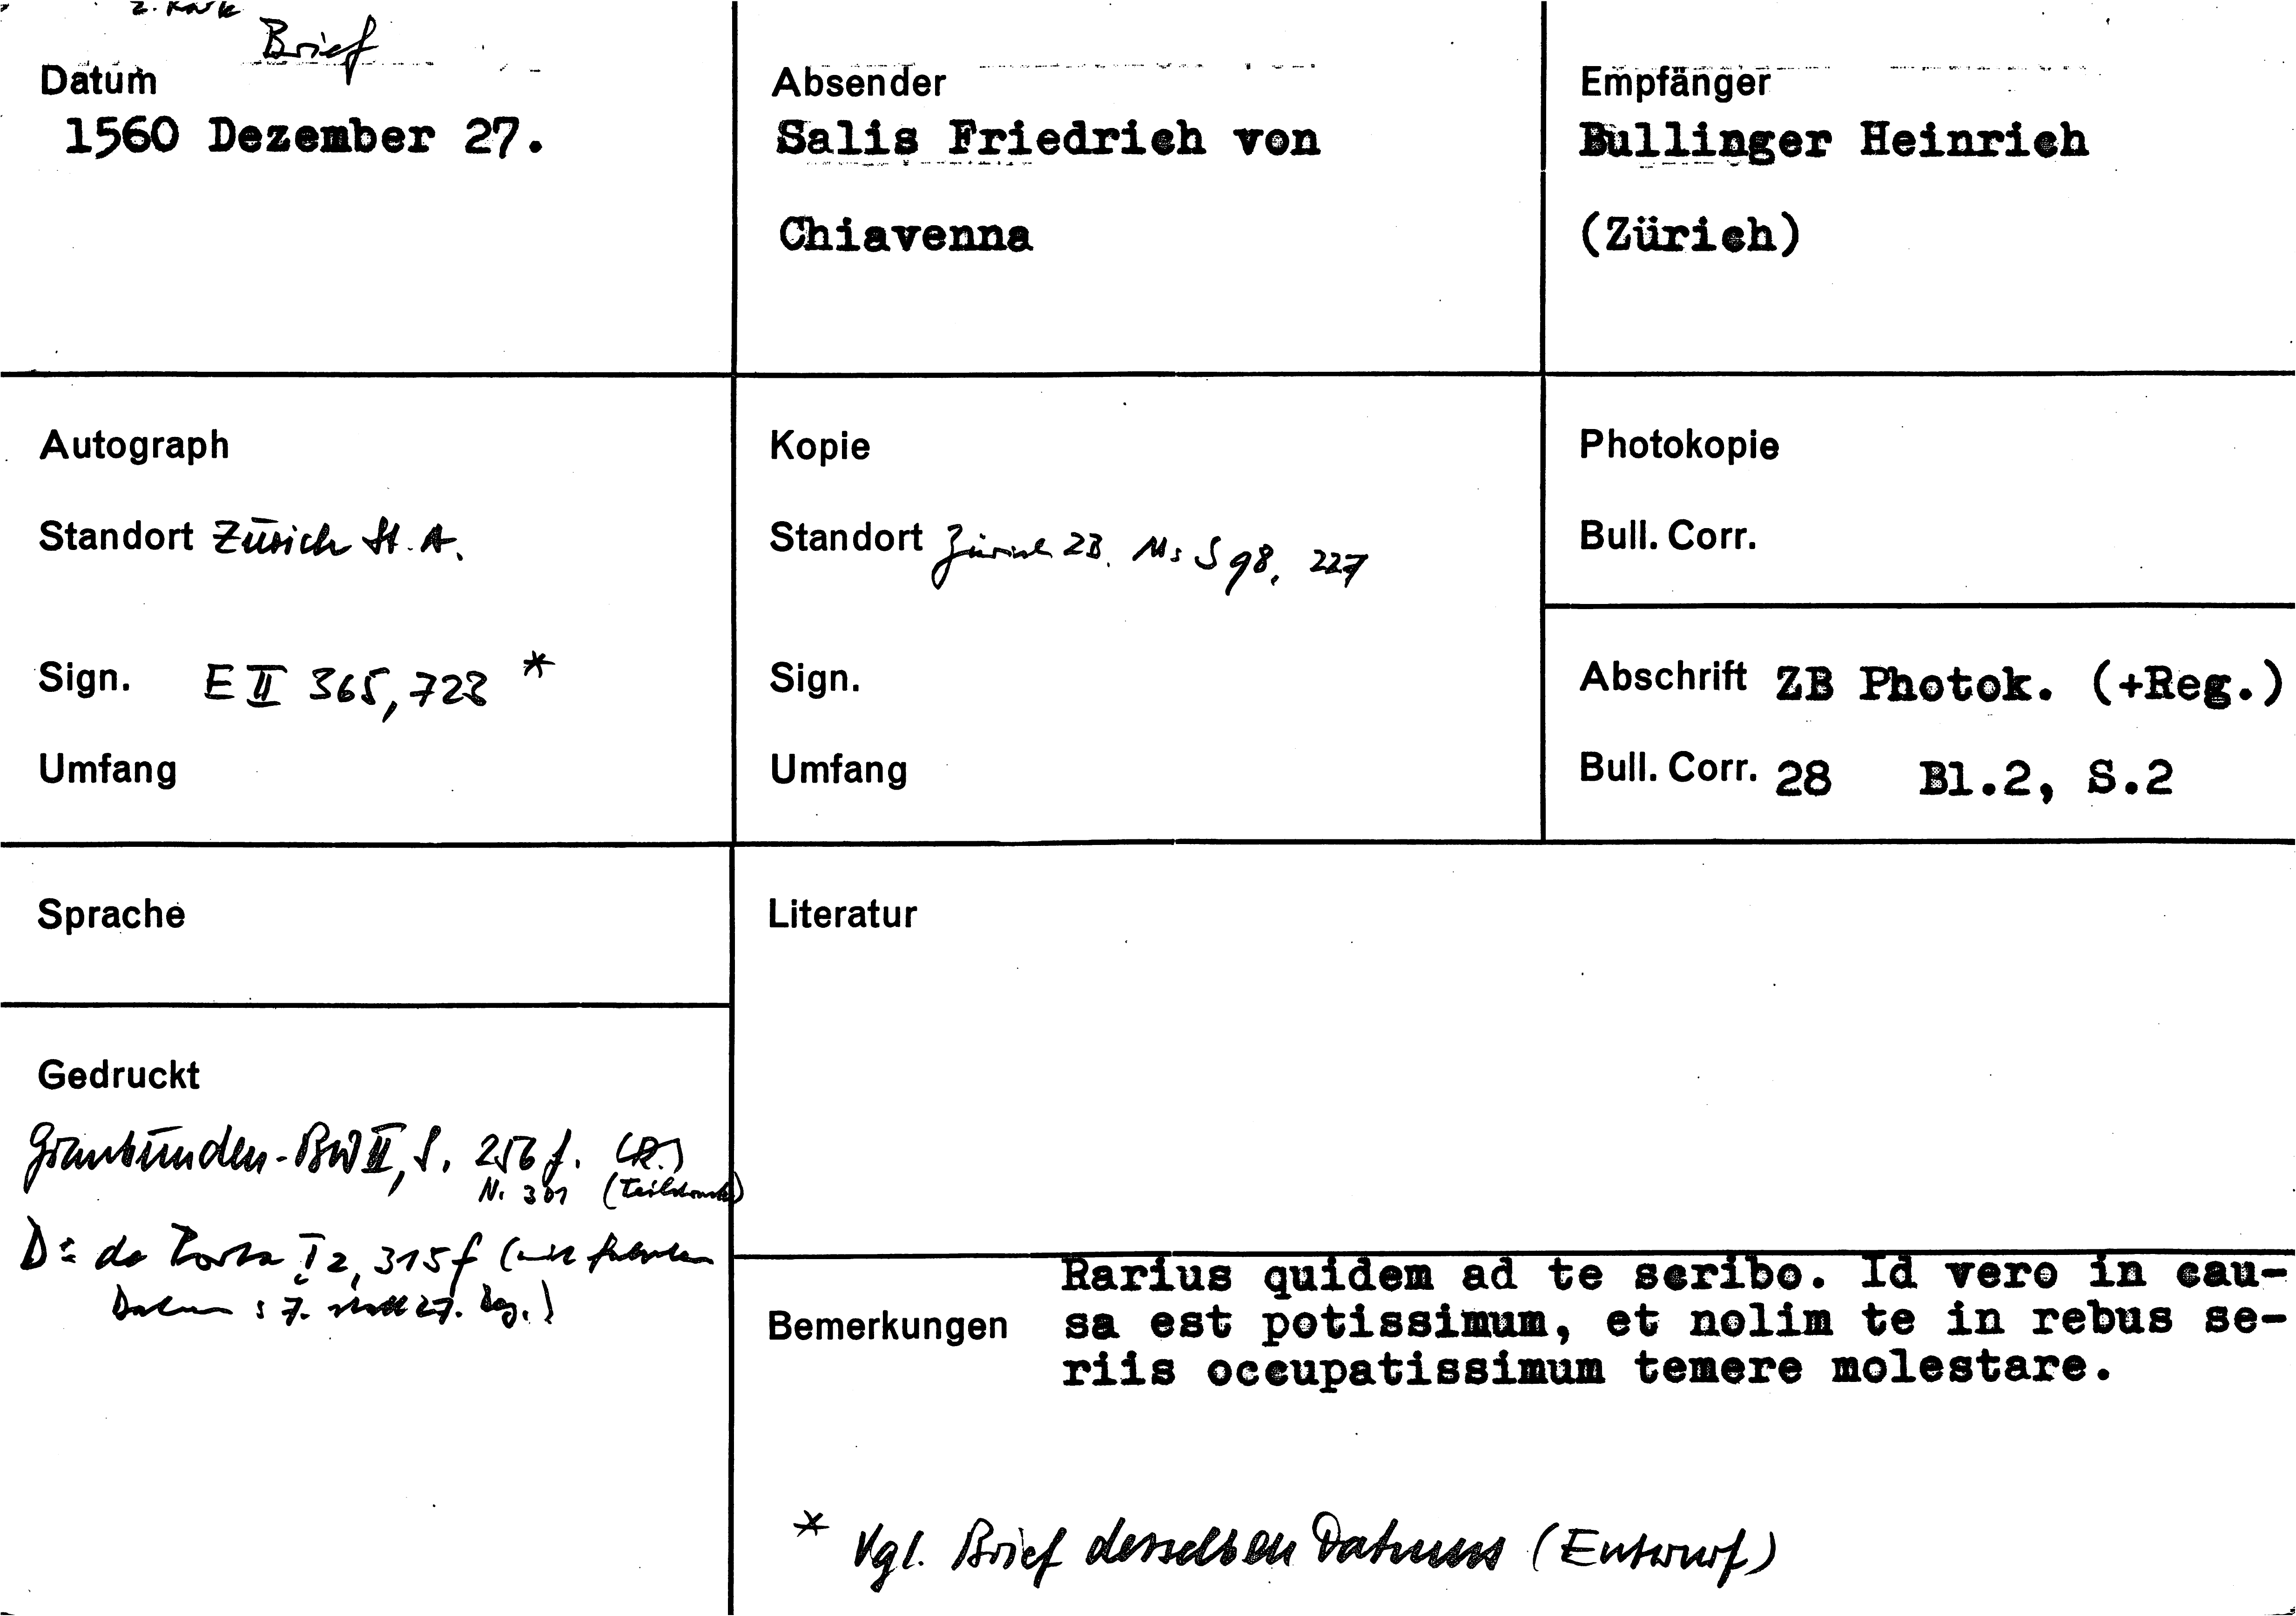 2. Karte
Brief
Datum
1560 Dezember 27.
Absender
Salis Friedrich von
Chiavenna
Empfänger
Bullinger Heinrich
(Zürich)
Autograph
Standort Zürich St. A.
Sign. E II 365, 723 *
Umfang
Kopie
Standort Zürich ZB. Ms S 98, 227
Sign.
Umfang
Photokopie
Bull. Corr.
Abschrift ZB Photok. (+Reg.)
Bull. Corr. 28 Bl.2, S.2
Sprache
Literatur
Gedruckt
Graubünden-BW II, S. 256 f. (R.)
Nr. 301 (Teildruck)
D: da Porta I 2, 315 f (mit falschem
Datum: 7. statt 27. Dez.)
Bemerkungen
Rarius quidem ad te scribo. Id vero in cau-
sa est potissimum, et nolim te in rebus se-
riis occupatissimum temere molestare.
* Vgl. Brief desselben Datums (Entwurf)